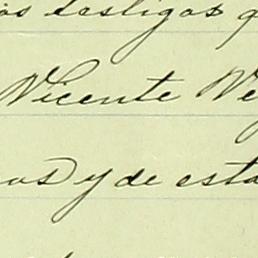 os testigos
Vicente
os y de esta